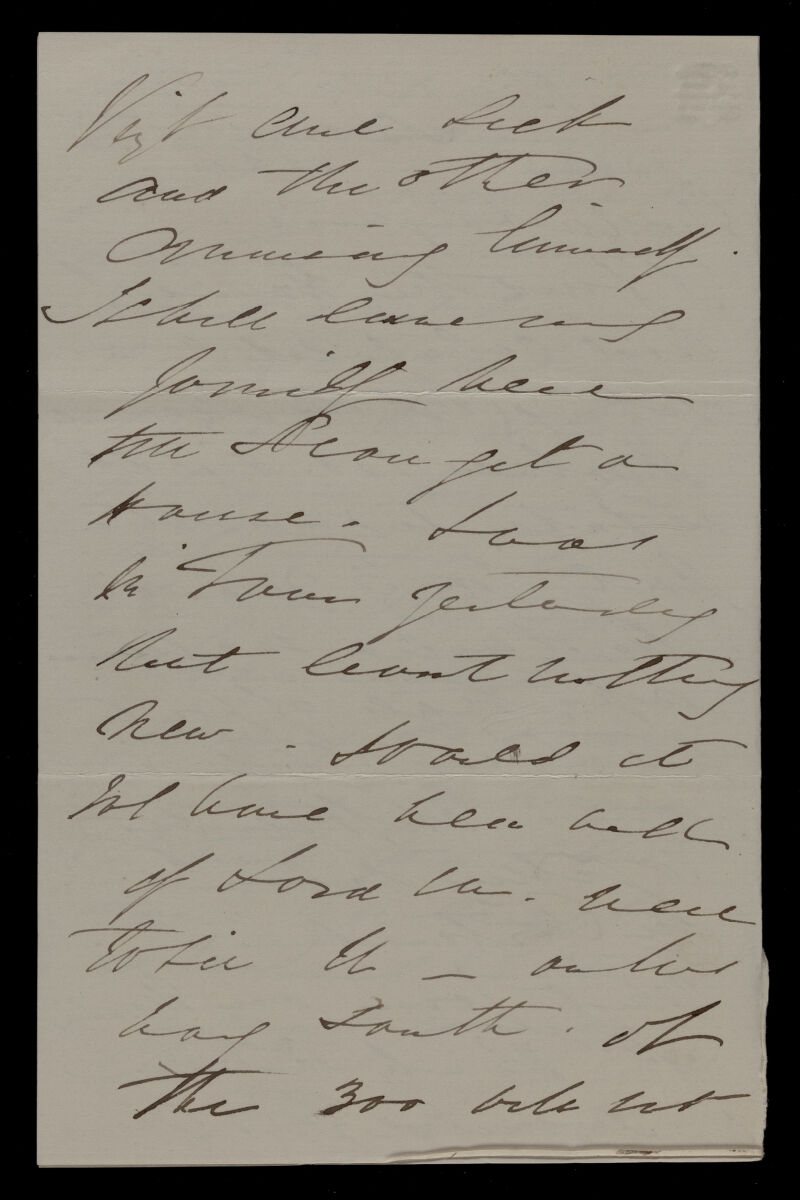 and sick
and the other
amusing himself.
I shall leave my
family here
till I can get a
House. I was
in Town yesterday
but learnt nothing
new. Would it
not have been well
of Lord were
to see U —
way South. Of
the 300 not